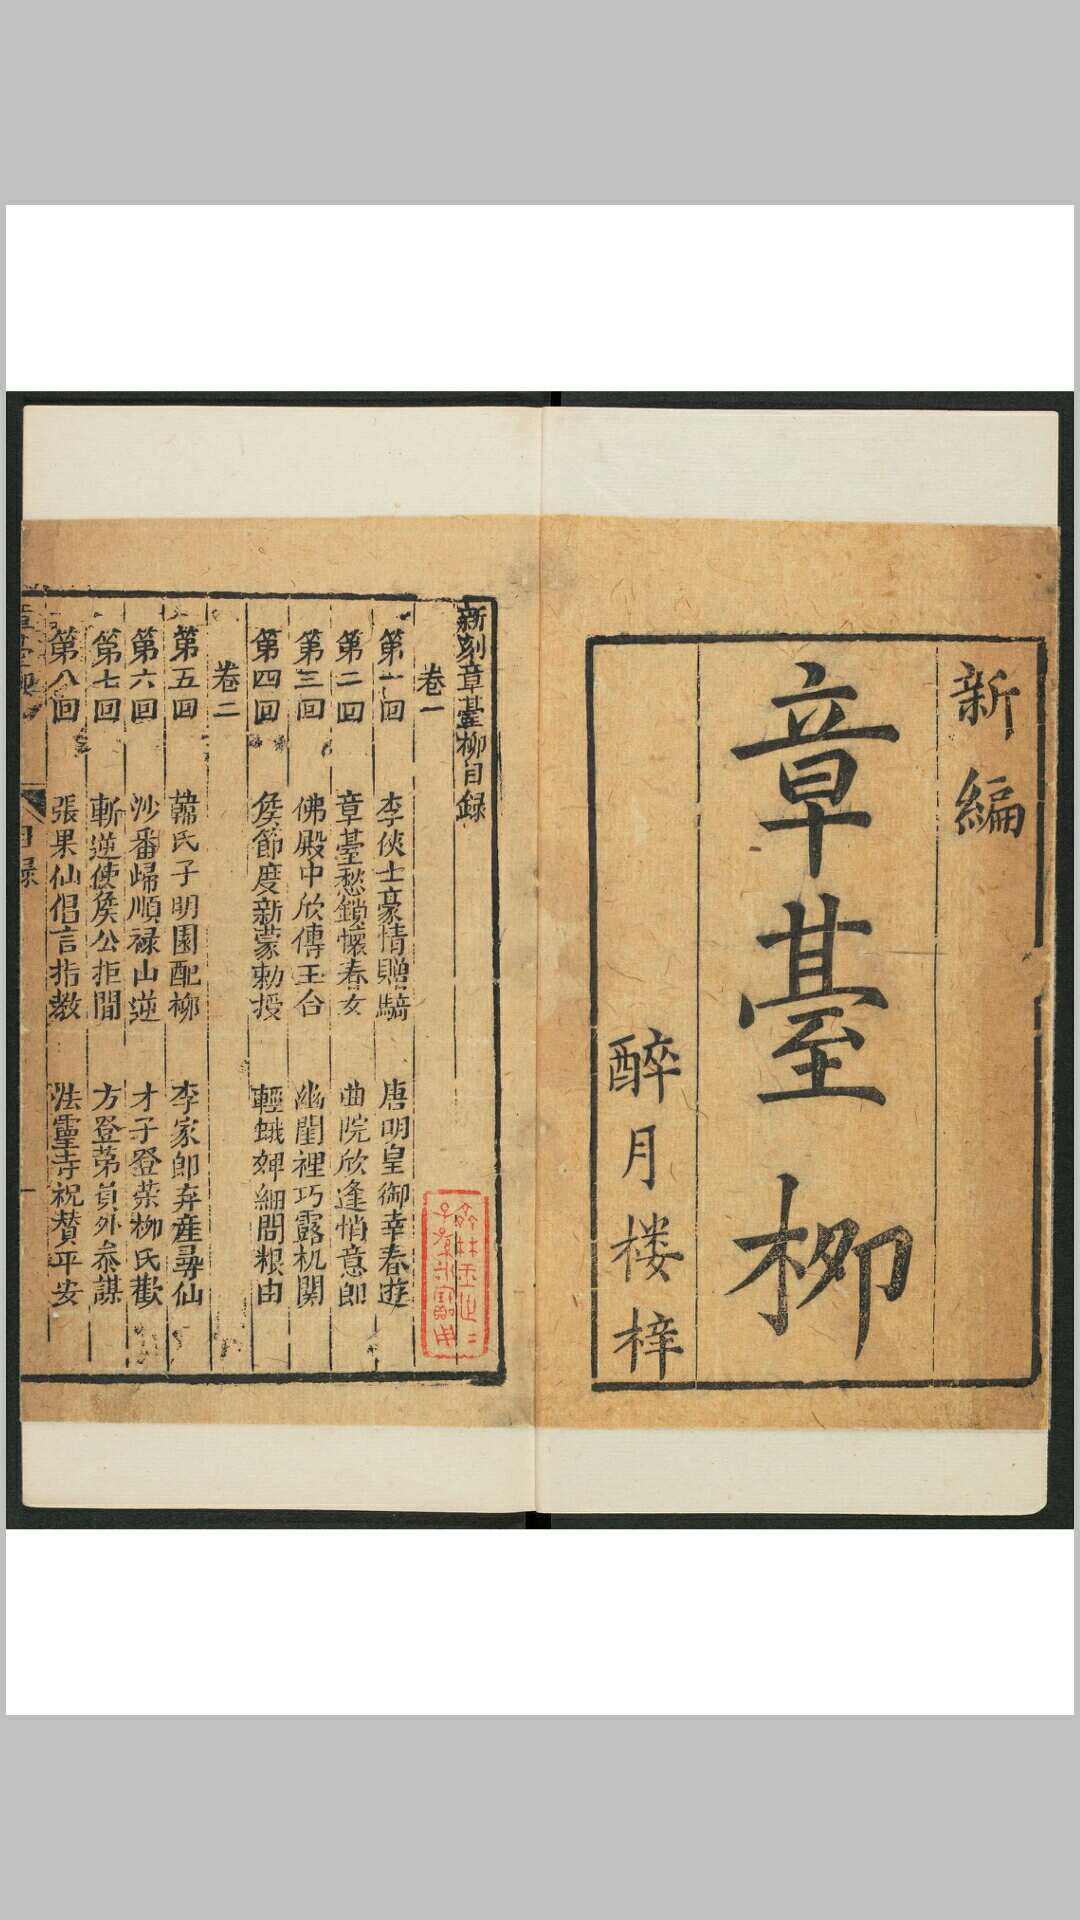 新編
章臺柳
醉月楼梓
新刻章臺柳目録
卷一
第一回 李俠士豪情贈騎 唐明皇御幸春遊
第二回 章臺愁鎖懷春女 曲院欣逢悄意郎
第三回 佛殿中欣傳玉合 幽閨裡巧露机関
第四回 矦節度新蒙勅授 輕蛾婢細問根由
卷二
第五回 韓氏子明園配柳 李家郎弃産尋仙
第六回 沙番歸順禄山逆 才子登荣柳氏歡
第七回 斬逆使矦公拒間 方登第員外叅謀
第八回 張果仙倡言指教 法靈寺祝賛平安
目録